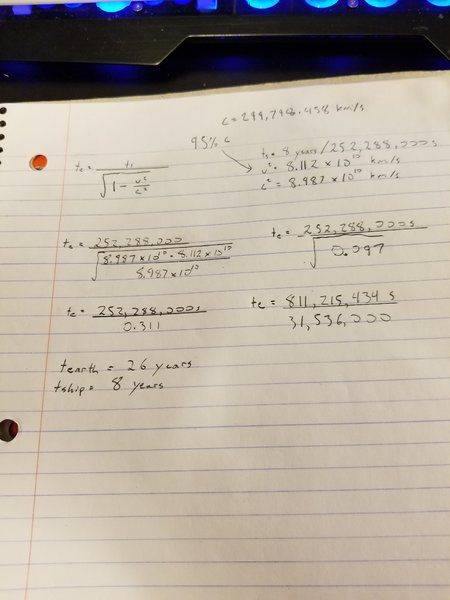 c = 299,798.458 km/s
95% c
ts = 8 years / 252,288,000s
v² = 8.112 x 10¹⁰ km/s
c² = 8.987 x 10¹⁰ km/s
te = ts / √(1 - v²/c²)
te = 252,288,000 / √((8.987 x 10¹⁰ - 8.112 x 10¹⁰) / 8.987 x 10¹⁰)
te = 252,288,000s / √0.097
te = 252,288,000s / 0.311
te = 811,215,434 s / 31,536,000
tearth = 26 years
tship = 8 years